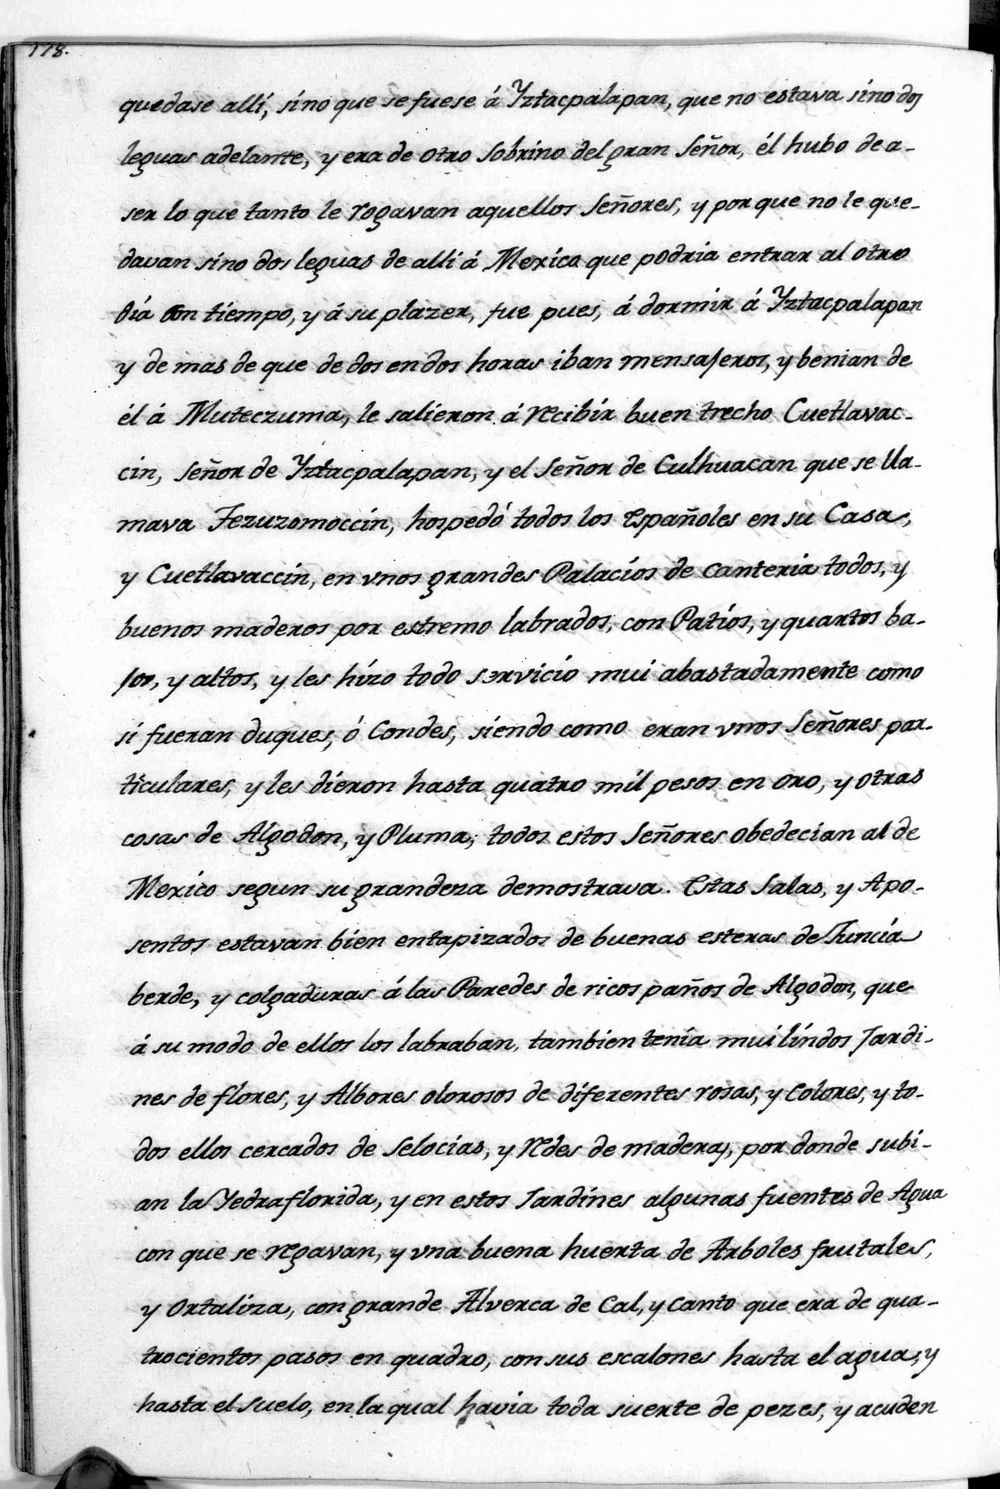 178.
quedase allí, sino que se fuese á Yztacpalapan, que no estava sino dos
leguas adelante, y era de otro sobrino del gran Señor, él hubo de a-
ser lo que tanto le rogavan aquellos Señores, y por que no le que-
davan sino dos leguas de alli á Mexico que podria entrar al otro
dia con tiempo, y á su plazer, fue pues, á dormir á Yztacpalapan
y de mas de que de dos en dos horas iban mensajeros, y benian de
él á Muteczuma, le salieron á recibir buen trecho Cuetlavac-
cin, Señor de Yztacpalapan, y el Señor de Culhuacan que se lla-
mava Tezuzomoccin, hospedó todos los Españoles en su Casa,
y Cuetlavaccin, en vnos grandes Palacios de canteria todos, y
buenos maderos por estremo labrados, con Patios, y quartos ba-
jos, y altos, y les hizo todo servicio mui abastadamente como
si fueran duques, ó Condes, siendo como eran vnos Señores par-
ticulares, y les dieron hasta quatro mil pesos en oro, y otras
cosas de Algodon, y Pluma, todos estos Señores obedecian al de
Mexico segun su grandeza demostrava. Estas Salas, y Apo-
sentos estavan bien entapizados de buenas esteras de Juncia
berde, y colgaduras á las Paredes de ricos paños de Algodon, que
á su modo de ellos los labraban, tambien tenia mui lindos Jardi-
nes de flores, y Albores olorosos de diferentes rosas, y Colores, y to-
dos ellos cercados de Selocias, y Redes de maderas, por donde subi-
an la Yedra florida, y en estos Jardines algunas fuentes de Agua
con que se regavan, y vna buena huerta de Arboles frutales,
y Ortaliza, con grande Alverca de Cal, y Canto que era de qua-
trocientos pasos en quadro, con sus escalones hasta el agua, y
hasta el suelo, en la qual havia toda suerte de pezes, y acuden